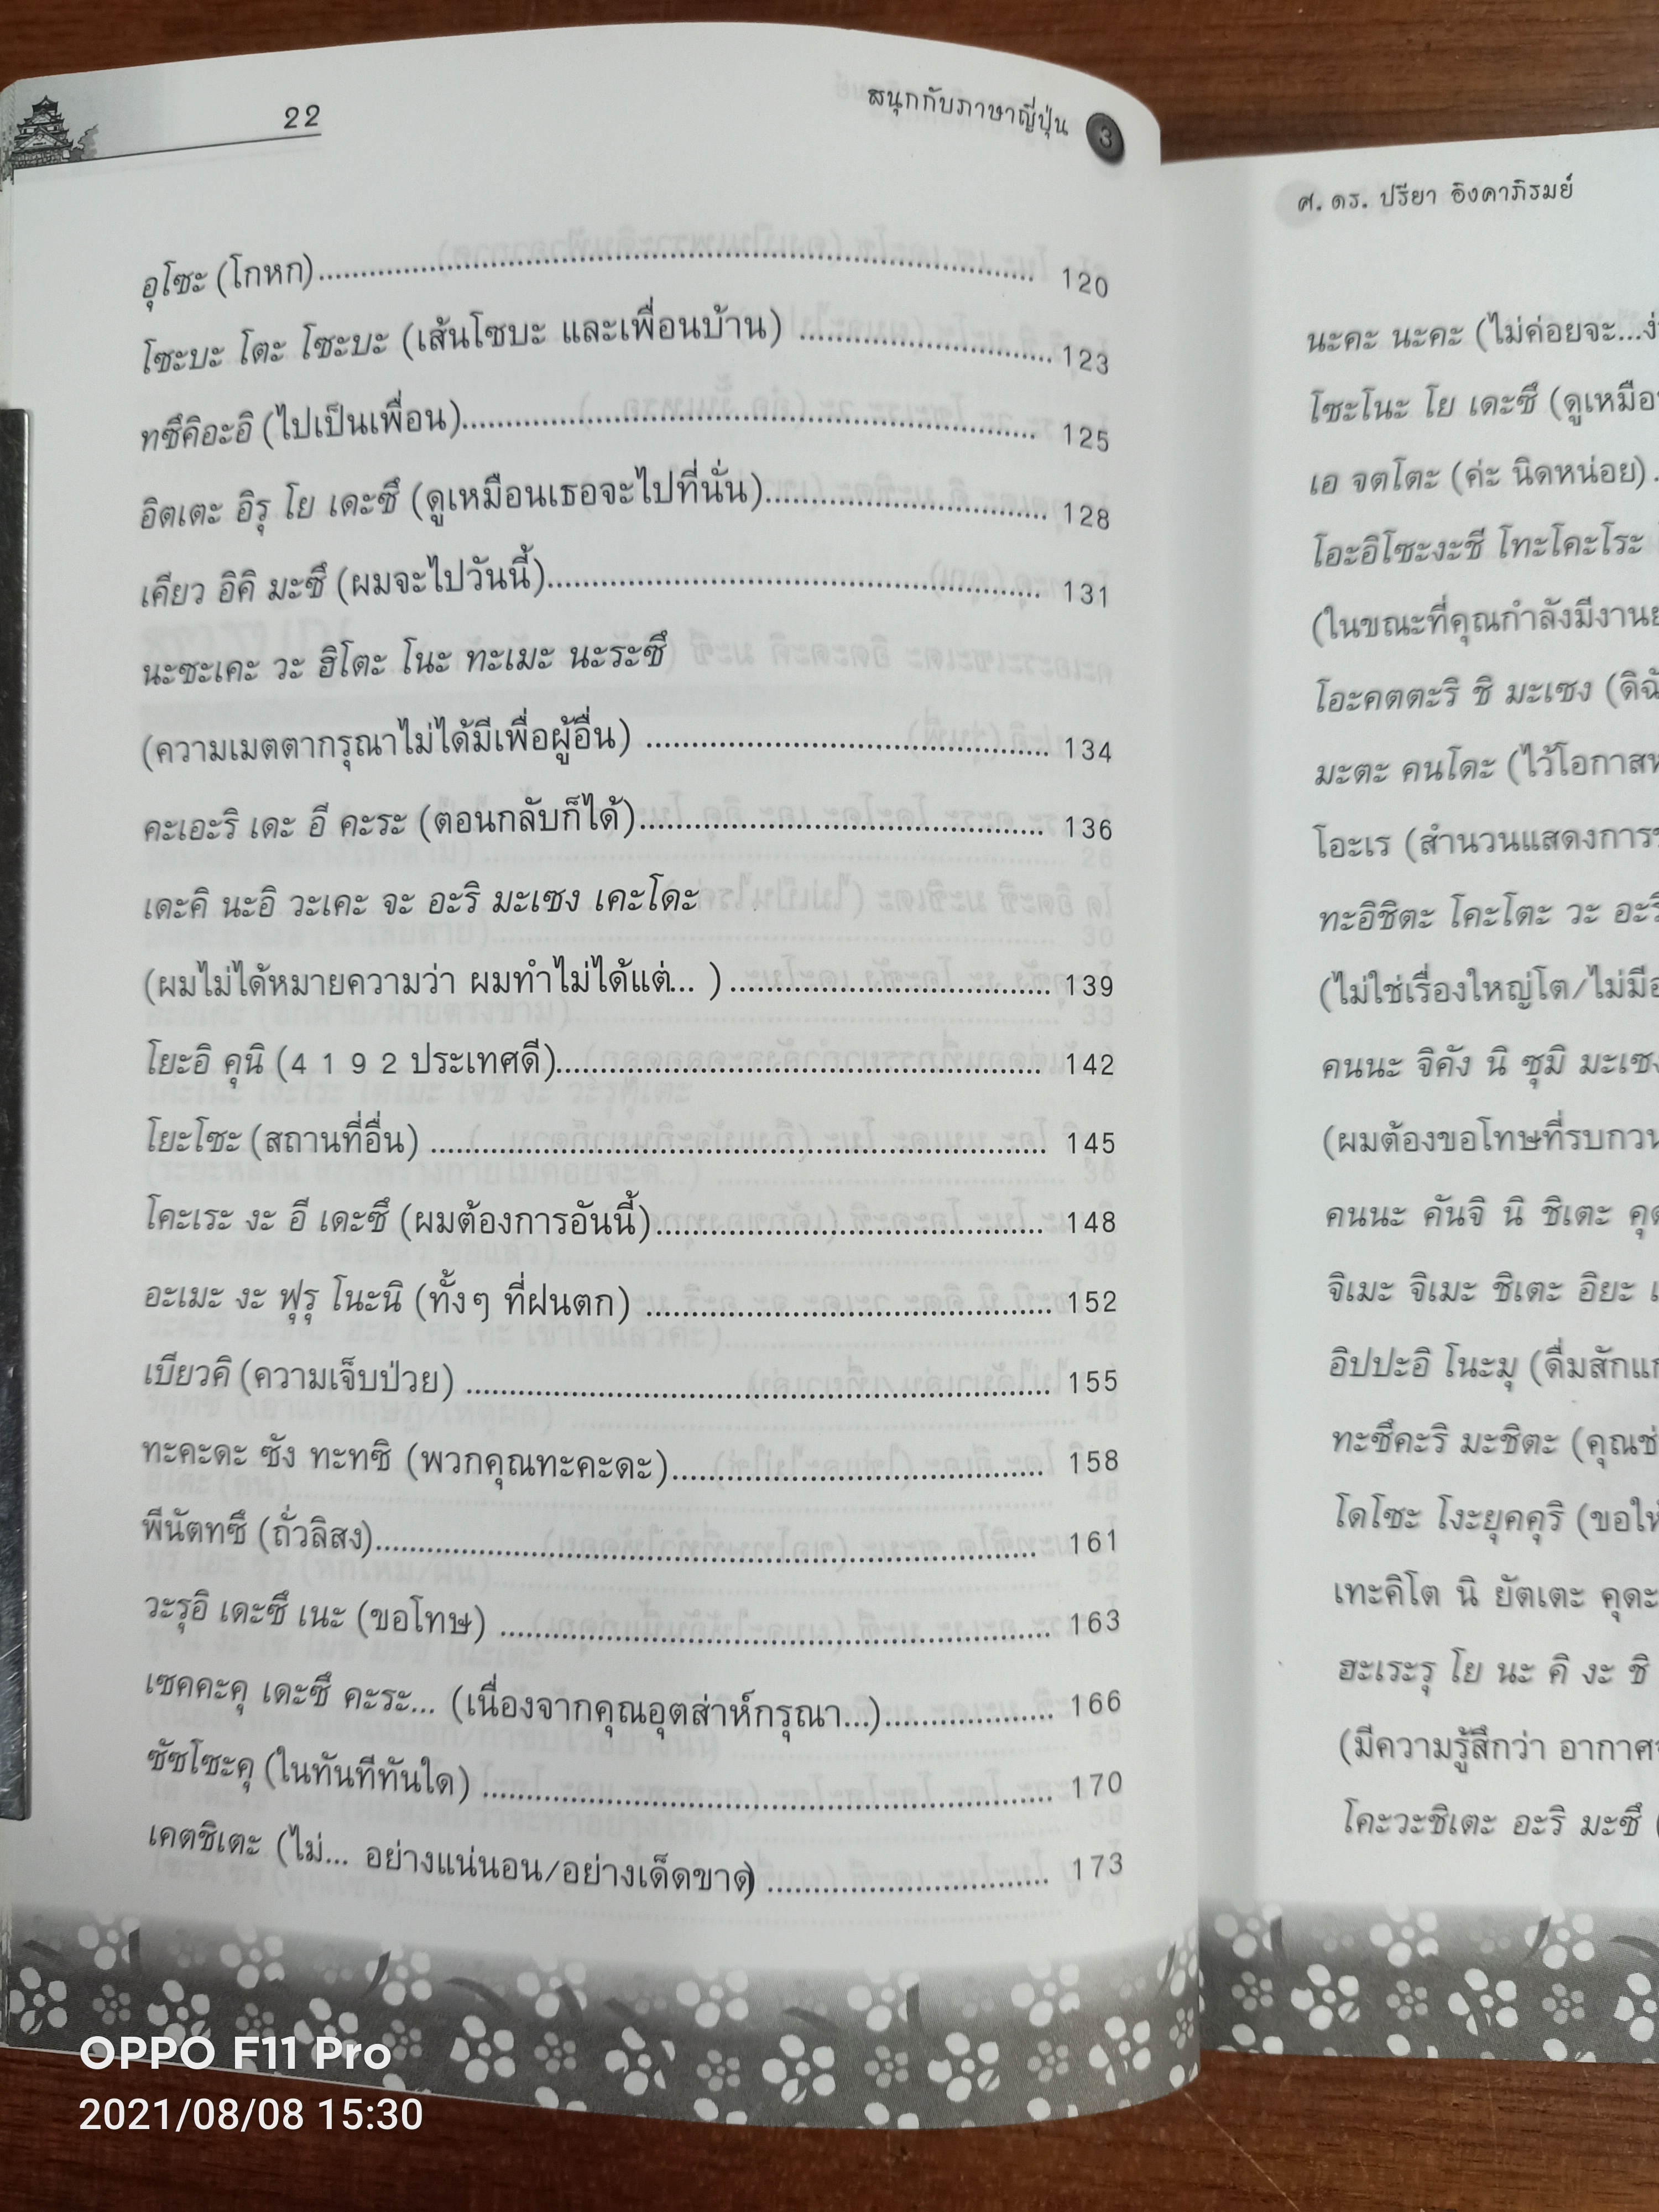 22
สนุกกับภาษาญี่ปุ่น 3
อุโซะ (โกหก) 120
โซะบะ โตะ โซะบะ (เส้นโซบะ และเพื่อนบ้าน) 123
ทซึคิอะอิ (ไปเป็นเพื่อน) 125
อิตเตะ อิรุ โย เดะซึ (ดูเหมือนเธอจะไปที่นั่น) 128
เคียว อิคิ มะซึ (ผมจะไปวันนี้) 131
นะซะเคะ วะ ฮิโตะ โนะ ทะเมะ นะระซึ
(ความเมตตากรุณาไม่ได้มีเพื่อผู้อื่น) 134
คะเอะริ เดะ อี คะระ (ตอนกลับก็ได้) 136
เดะคิ นะอิ วะเคะ จะ อะริ มะเซง เคะโดะ
(ผมไม่ได้หมายความว่า ผมทำไม่ได้แต่... ) 139
โยะอิ คุนิ (4 1 9 2 ประเทศดี) 142
โยะโซะ (สถานที่อื่น) 145
โคะเระ งะ อี เดะซึ (ผมต้องการอันนี้) 148
อะเมะ งะ ฟุรุ โนะนิ (ทั้งๆ ที่ฝนตก) 152
เบียวคิ (ความเจ็บป่วย) 155
ทะคะดะ ซัง ทะทซิ (พวกคุณทะคะดะ) 158
พีนัตทซึ (ถั่วลิสง) 161
วะรุอิ เดะซึ เนะ (ขอโทษ) 163
เซคคะคุ เดะซึ คะระ... (เนื่องจากคุณอุตส่าห์กรุณา...) 166
ซัซโซะคุ (ในทันทีทันใด) 170
เคตชิเตะ (ไม่... อย่างแน่นอน/อย่างเด็ดขาด) 173
ศ. ดร. ปรียา อิงคาภิรมย์
นะคะ นะคะ (ไม่ค่อยจะ...
โซะโนะ โย เดะซึ
เอ จตโตะ (ค่ะ นิดหน่อย)
โอะอิโซะงะชี โทะโคะโระ
(ในขณะที่คุณกำลังมีงาน
โอะคตตะริ ชิ มะเซง
มะตะ คนโดะ
โอะเร (สำนวนแสดงการ
ทะอิชิตะ โคะโตะ วะ
(ไม่ใช่เรื่องใหญ่โต/
คนนะ จิคัง นิ ซุมิ มะเซง
(ผมต้องขอโทษที่รบกวน
คนนะ คันจิ นิ ชิเตะ
จิเมะ จิเมะ ชิเตะ อิยะ
อิปปะอิ โนะมุ
ทะซึคะริ มะชิตะ
โดโซะ โงะยุคคุริ
เทะคิโต นิ ยัตเตะ
ฮะเระรุ โย นะ คิ งะ ชิ
(มีความรู้สึกว่า
โคะวะชิเตะ อะริ มะซึ
OPPO F11 Pro
2021/08/08 15:30